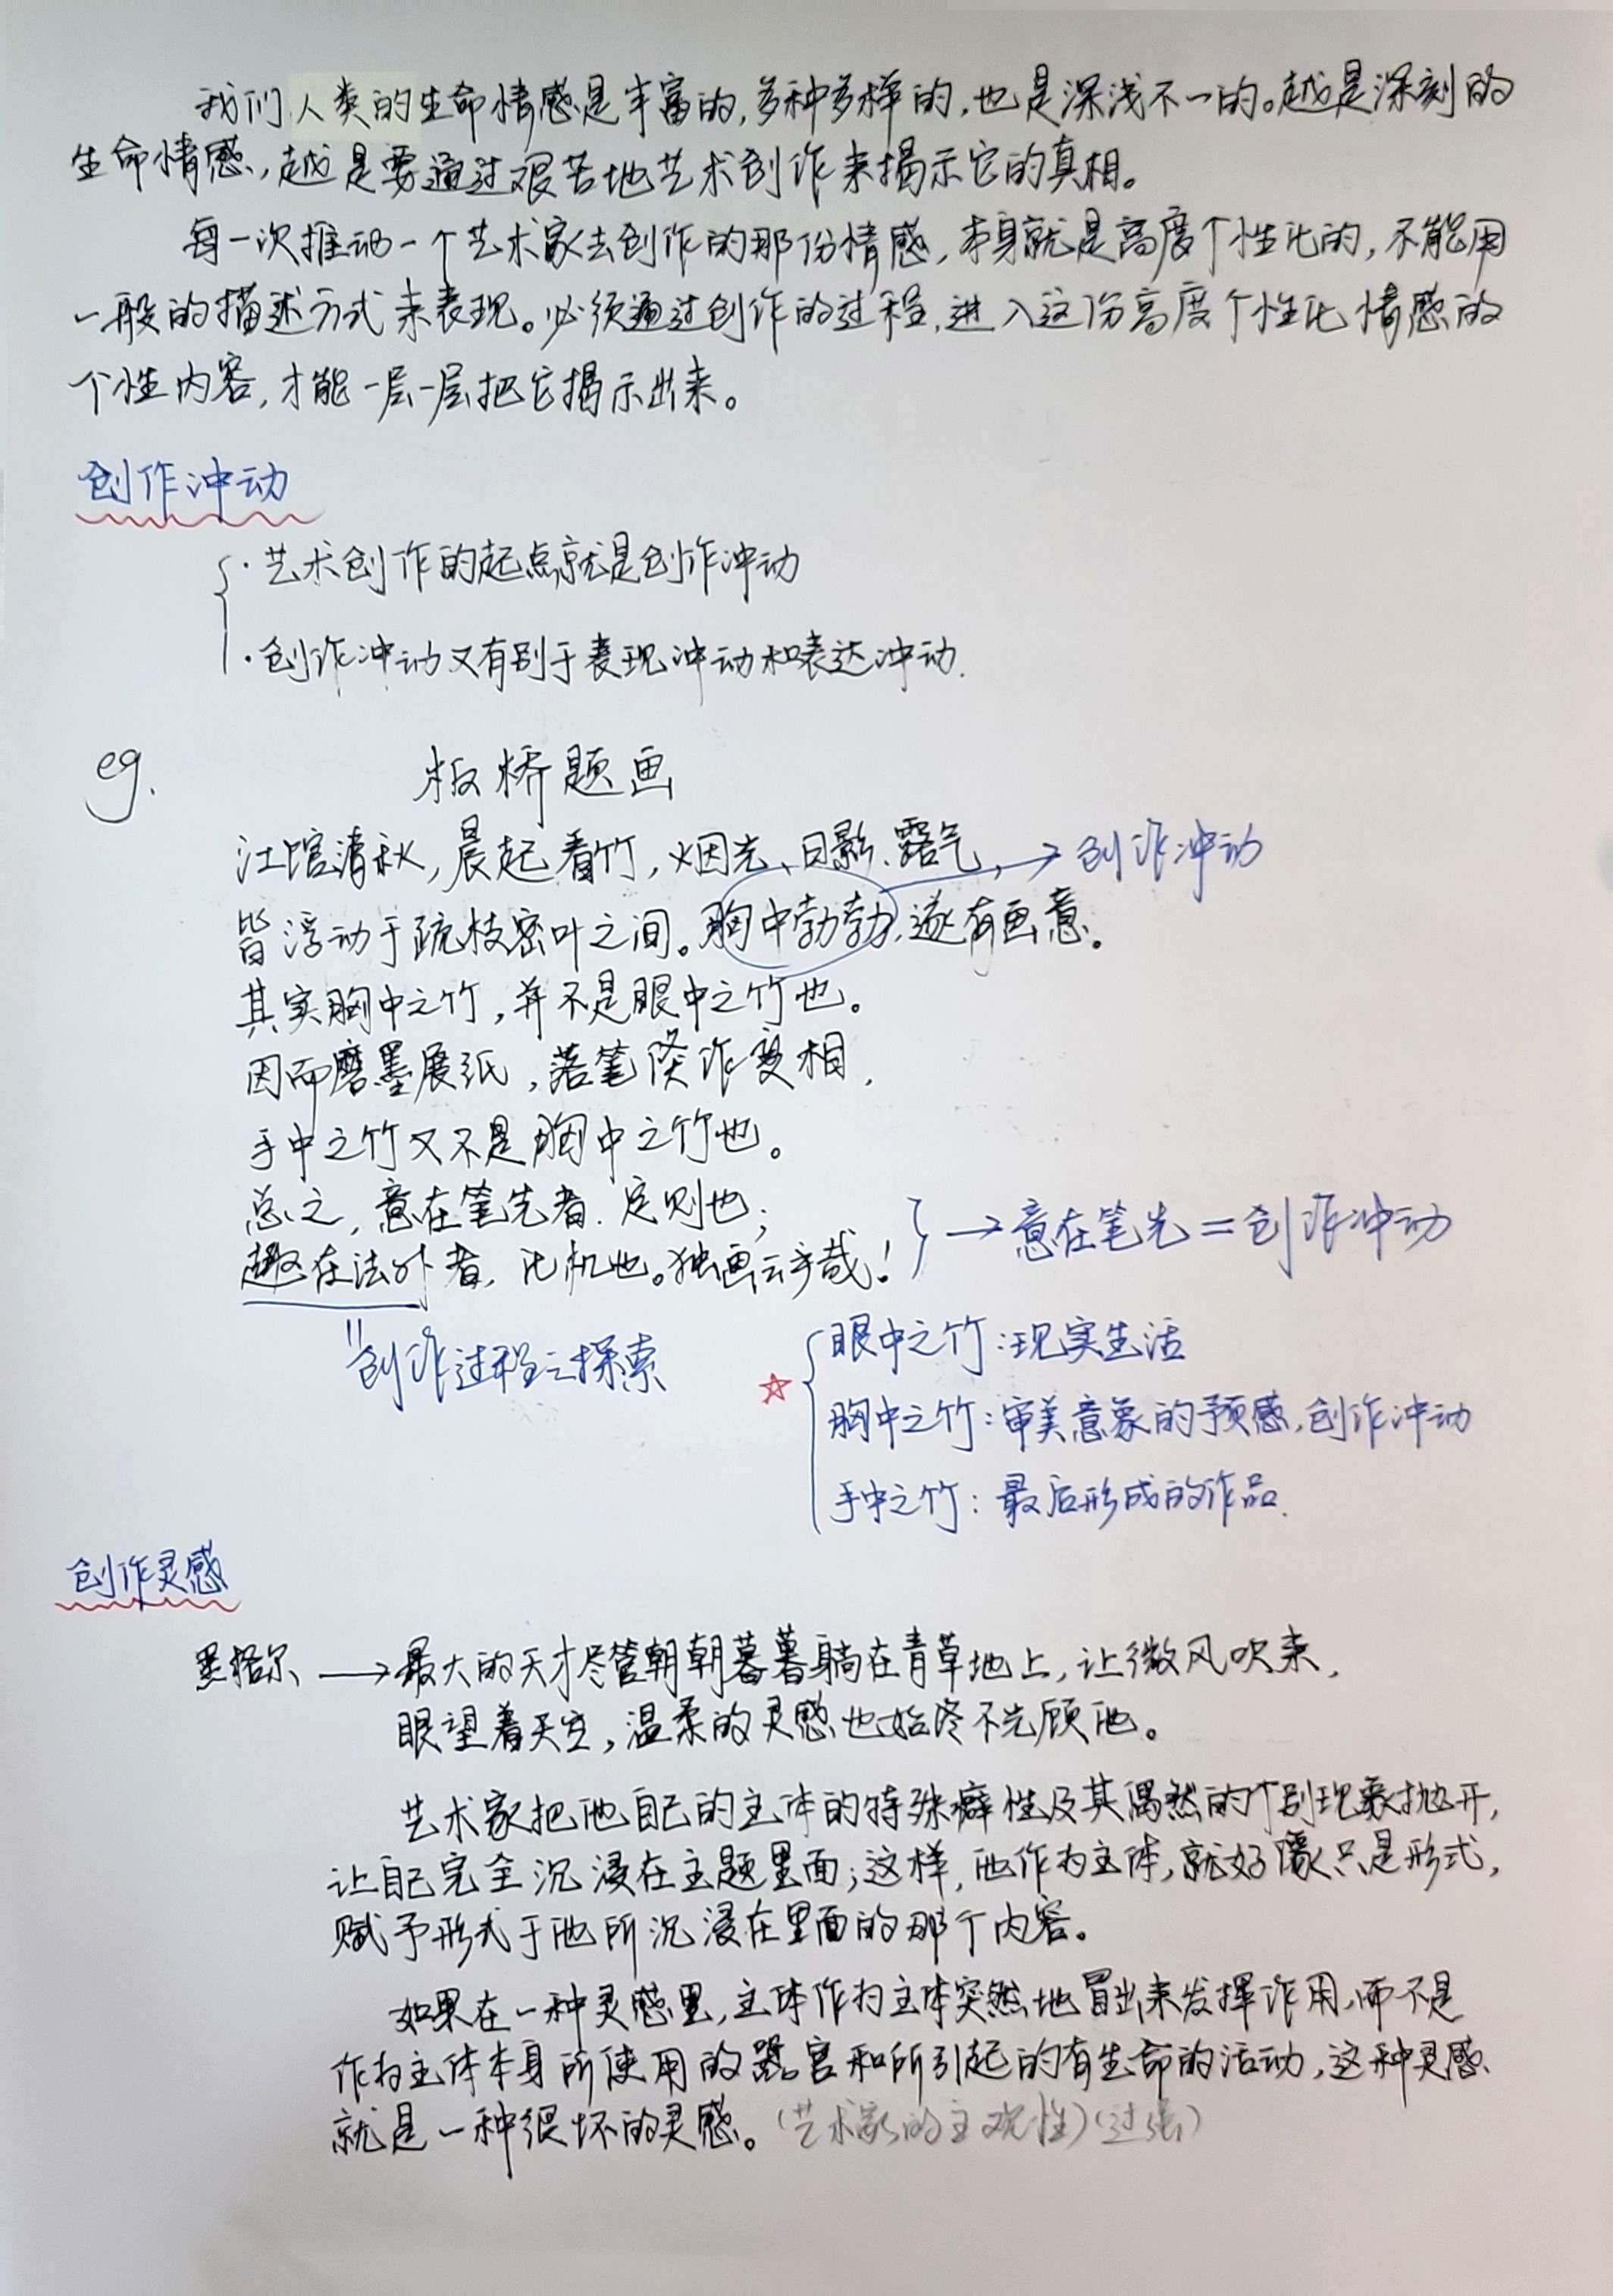 我们人类的生命情感是丰富的,多种多样的,也是深浅不一的。越是深刻的
生命情感,越是要通过艰苦地艺术创作来揭示它的真相。
每一次推动一个艺术家去创作的那份情感,本身就是高度个性化的,不能用
一般的描述方式来表现。必须通过创作的过程,进入这份高度个性化情感的
个性内容,才能一层一层把它揭示出来。
创作冲动
·艺术创作的起点就是创作冲动
·创作冲动又有别于表现冲动和表达冲动.
eg.
板桥题画
江馆清秋,晨起看竹,烟光、日影、露气, → 创作冲动
皆浮动于疏枝密叶之间。胸中勃勃,遂有画意。
其实胸中之竹,并不是眼中之竹也。
因而磨墨展纸,落笔倏作变相,
手中之竹又不是胸中之竹也。
总之,意在笔先者.定则也;
趣在法外者,化机也。独画云乎哉!
→意在笔先=创作冲动
创作过程之探索
☆ 眼中之竹:现实生活
胸中之竹:审美意象的预感,创作冲动
手中之竹:最后形成的作品.
创作灵感
黑格尔 → 最大的天才尽管朝朝暮暮躺在青草地上,让微风吹来,
眼望着天空,温柔的灵感也始终不光顾他。
艺术家把他自己的主体的特殊癖性及其偶然的个别现象抛开,
让自己完全沉浸在主题里面;这样,他作为主体,就好像只是形式,
赋予形式于他所沉浸在里面的那个内容。
如果在一种灵感里,主体作为主体突然地冒出来发挥作用,而不是
作为主体本身所使用的器官和所引起的有生命的活动,这种灵感
就是一种很坏的灵感。(艺术家的主观性)(过强)